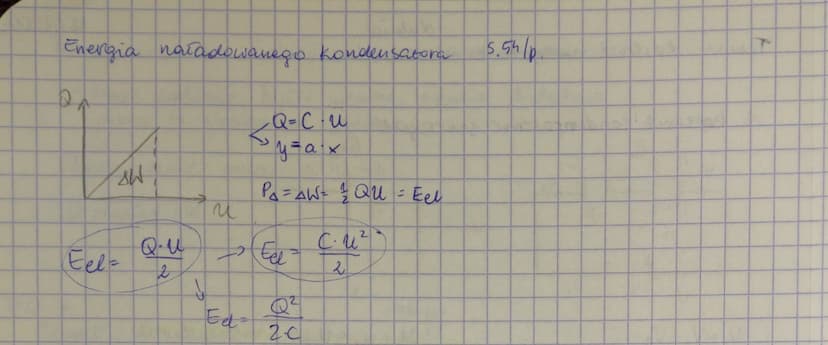 Energia naładowanego kondensatora s.54/p.
Q
Q = C · U
y = a · x
ΔW
U
P△ = ΔW = 1/2 QU = Eel
Eel = Q·U/2 → Eel = C·U²/2
↓ Eel = Q²/2·C